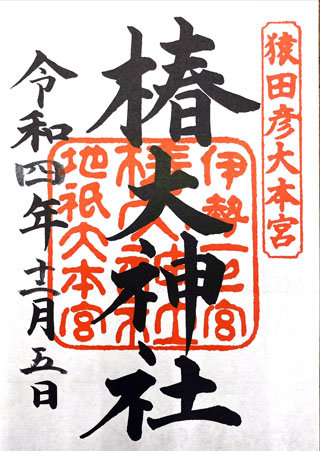 猿田彦大本宮
椿大神社
伊勢一之宮
椿大神社
地祇大本宮
令和四年十二月五日